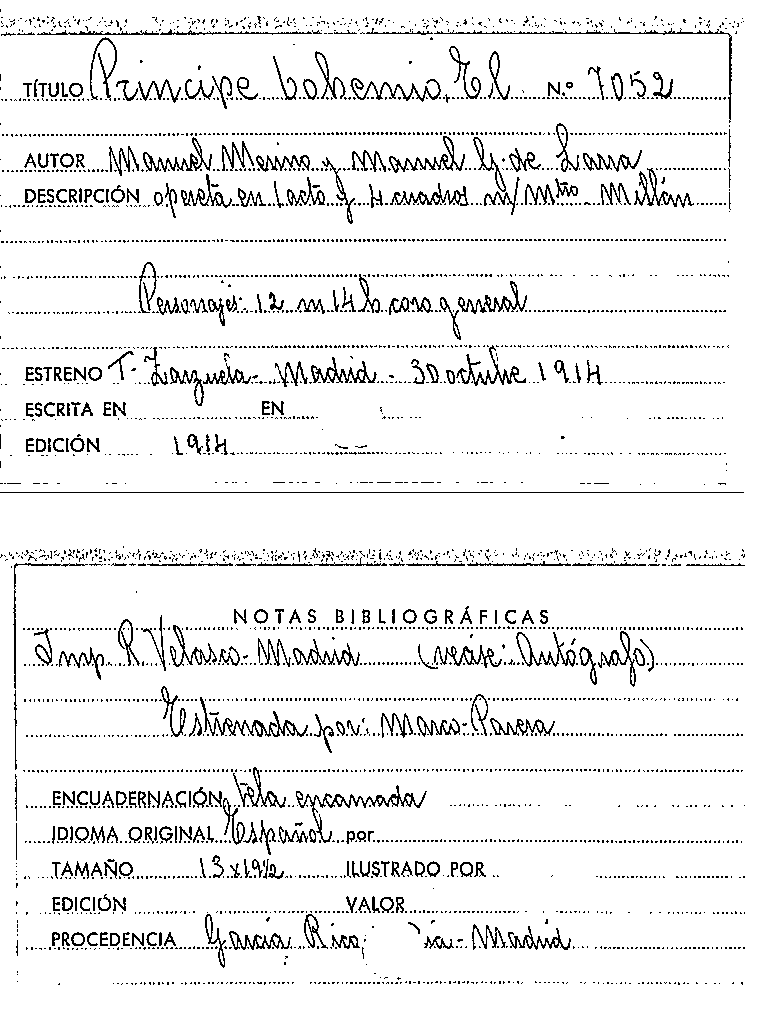 TÍTULO Príncipe bohemio, El N.º 7052
AUTOR Manuel Merino y Manuel G. de Lara
DESCRIPCIÓN opereta en 1 acto y 4 cuadros m/ Mtro. Millán
Personajes: 12 m 14 h coro general
ESTRENO T. Zarzuela - Madrid - 30 octubre 1914
ESCRITA EN EN
EDICIÓN 1914
NOTAS BIBLIOGRÁFICAS
Imp. R. Velasco - Madrid (veáse: Autógrafo)
Estrenada por: Marco - Parera
ENCUADERNACIÓN tela encarnada
IDIOMA ORIGINAL Español por
TAMAÑO 13 x 19½ ILUSTRADO POR
EDICIÓN VALOR
PROCEDENCIA García Rico, - Madrid